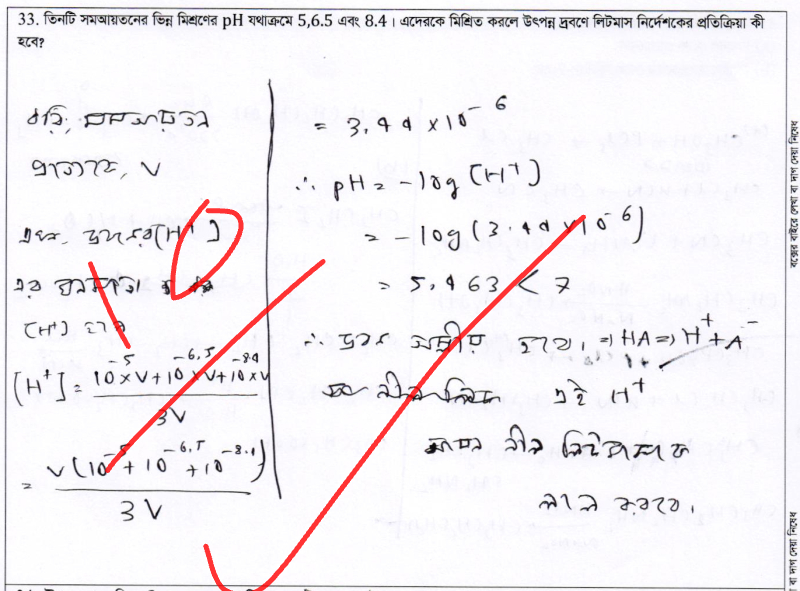 33. তিনটি সমআয়তনের ভিন্ন মিশ্রণের pH যথাক্রমে 5,6.5 এবং 8.4। এদেরকে মিশ্রিত করলে উৎপন্ন দ্রবণে লিটমাস নির্দেশকের প্রতিক্রিয়া কী
হবে?
ধরি,
প্রত্যেকে, V
এবং দ্রবণে [H⁺]
এর
[H⁺] হবে
[H⁺] = 10⁻⁵×V+10⁻⁶·⁵×V+10⁻⁸·⁴×V
3V
= V(10⁻⁵+10⁻⁶·⁵+10⁻⁸·⁴)
3V
= 3.44 × 10⁻⁶
∴ pH = -log[H⁺]
= -log(3.44×10⁻⁶)
= 5.463 < 7
∴ দ্রবণ অম্লীয় হবে। ⇒HA⇒H⁺+A⁻
এই H⁺
নীল লিটমাসকে
লাল করবে।
বক্সের বাইরে লেখা বা দাগ দেয়া নিষেধ
বা দাগ দেয়া নিষেধ